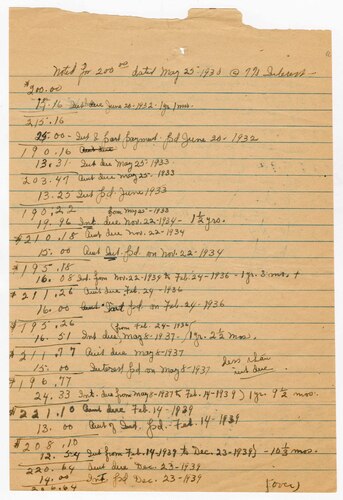 Note for 200.00 dated May 25-1930 @ 7% Interest -
$200.00
15.16 Int due June 20-1932 - 1yr / mos.
215.16
25.00 - Int & Part Payment Pd June 20-1932
190.16 Amt due
13.31 Int due May 25-1933
203.47 Amt due May 25-1933
13.25 Int Pd. June 1933
190.22 from May 25-1933
19.96 Int. due Nov. 22-1934 - 1 1/2 yrs.
$210.18 Amt due Nov. 22-1934
15.00 Amt Int. Pd on Nov. 22-1934
$195.18
16.08 Int. from Nov. 22-1934 to Feb. 24-1936 - 1yr. 3 mos. +
$211.26 Amt due Feb. 24-1936
16.00 Amt Int Pd on Feb. 24-1936
$195.26 from Feb. 24-1936
16.51 Int due May 8-1937. 1yr. 2 1/2 mos.
$211.77 Amt due May 8-1937
15.00 Interest Pd on May 8-1937
less than
int due.
$196.77
24.33 Int. due from May 8-1937 to Feb. 14-1939) 1yr. 9 1/2 mos.
$221.10 Amt due Feb. 14-1939
13.00 Amt of Int. Pd. Feb. 14-1939
$208.10
12.54 Int from Feb. 14-1939 to Dec. 23-1939) - 10 1/3 mos.
220.64 Amt due Dec. 23-1939
14.00 Int Pd Dec. 23-1939
206.64
(over)